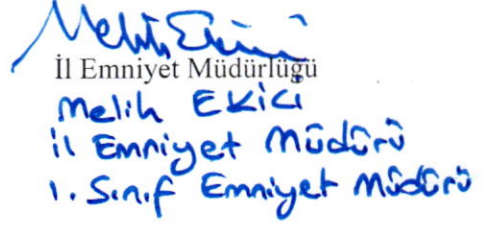 Melih Ekici
İl Emniyet Müdürlüğü
Melih EKİCİ
İl Emniyet Müdürü
1. Sınıf Emniyet Müdürü